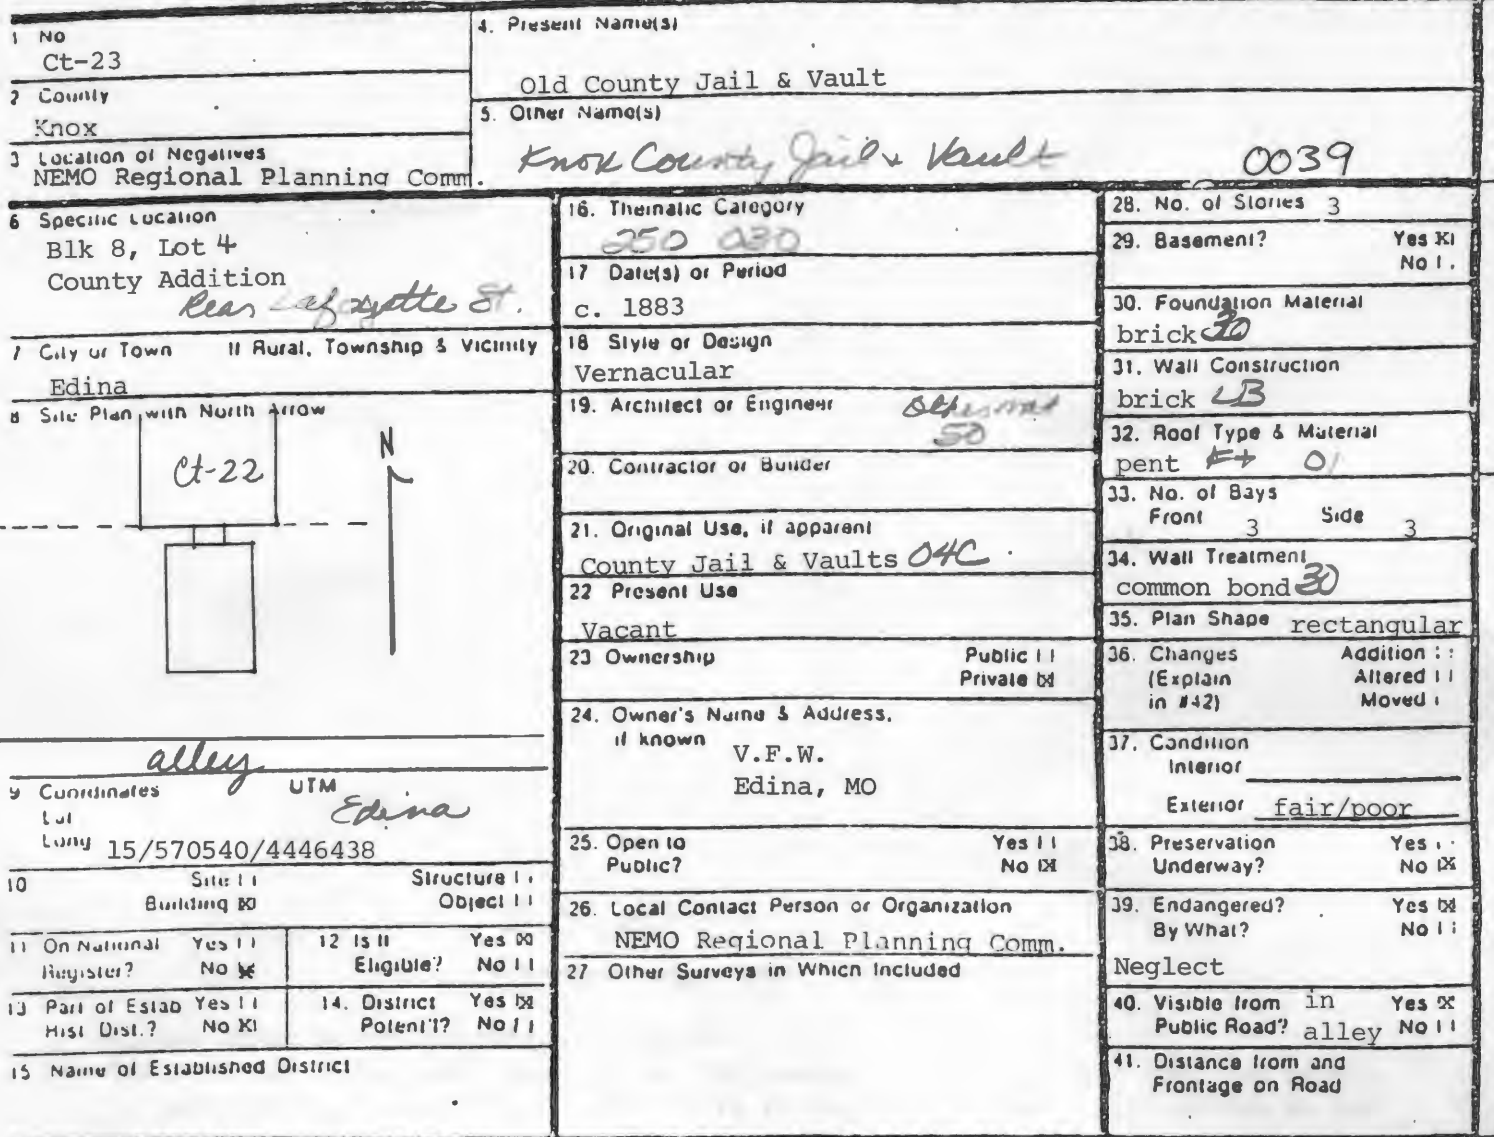 1 No
Ct-23
2 County
Knox
3 Location of Negatives
NEMO Regional Planning Comm.
4. Present Name(s)
Old County Jail & Vault
5. Other Name(s)
Knox County Jail & Vault
0039
6 Specific Location
Blk 8, Lot 4
County Addition
Rear Lafayette St.
7 City or Town If Rural, Township & Vicinity
Edina
8 Site Plan with North Arrow
Ct-22
N
alley
9 Coordinates UTM
Lat
Long
Edina
15/570540/4446438
10 Site [ ] Structure [ ]
Building [X] Object [ ]
11 On National Register? Yes [ ] No [X]
12 Is It Eligible? Yes [X] No [ ]
13 Part of Estab Hist Dist.? Yes [ ] No [X]
14. District Potent'l? Yes [X] No [ ]
15 Name of Established District
16. Thematic Category
250 030
17 Date(s) or Period
c. 1883
18 Style or Design
Vernacular
19. Architect or Engineer
50
20. Contractor or Builder
21. Original Use, if apparent
County Jail & Vaults 04C
22 Present Use
Vacant
23 Ownership Public [ ]
Private [X]
24. Owner's Name & Address,
if known
V.F.W.
Edina, MO
25. Open to Yes [ ]
Public? No [X]
26. Local Contact Person or Organization
NEMO Regional Planning Comm.
27 Other Surveys in Which Included
28. No. of Stories 3
29. Basement? Yes [X]
No [ ]
30. Foundation Material
brick 30
31. Wall Construction
brick LB
32. Roof Type & Material
pent 01
33. No. of Bays
Front 3 Side 3
34. Wall Treatment
common bond 30
35. Plan Shape rectangular
36. Changes Addition [ ]
(Explain Altered [ ]
in #42) Moved [ ]
37. Condition
Interior
Exterior fair/poor
38. Preservation Yes [ ]
Underway? No [X]
39. Endangered? Yes [X]
By What? No [ ]
Neglect
40. Visible from in Yes [X]
Public Road? alley No [ ]
41. Distance from and
Frontage on Road